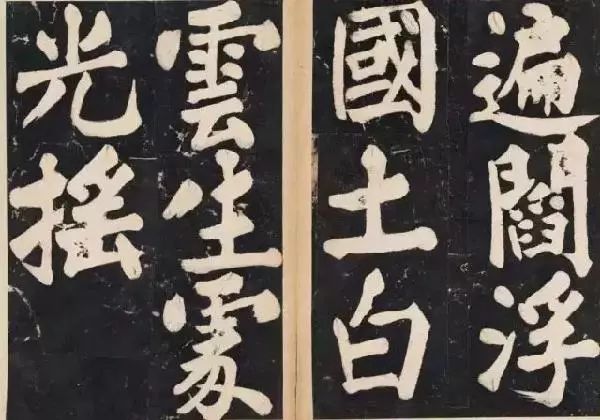 遍閻浮
國土白
雲生處
光摇